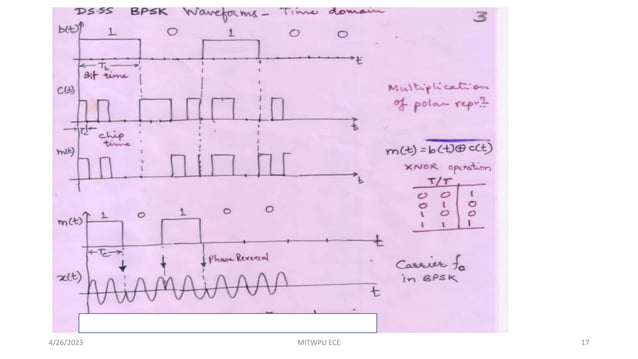 DS-SS BPSK Waveforms - Time domain
3
b(t)
1 0 1 0 0
t
Tb
Bit time
C(t)
t
Tc
chip time
Multiplication
of polar reprⁿ
m(t) = b(t) ⊕ c(t)
XNOR operation
T/T
0 0 1
0 1 0
1 0 0
1 1 1
m(t)
t
m(t)
1 0 1 0 0
t
Tc
Phase Reversal
x(t)
t
Carrier fo
in BPSK
4/26/2023
MITWPU ECE
17